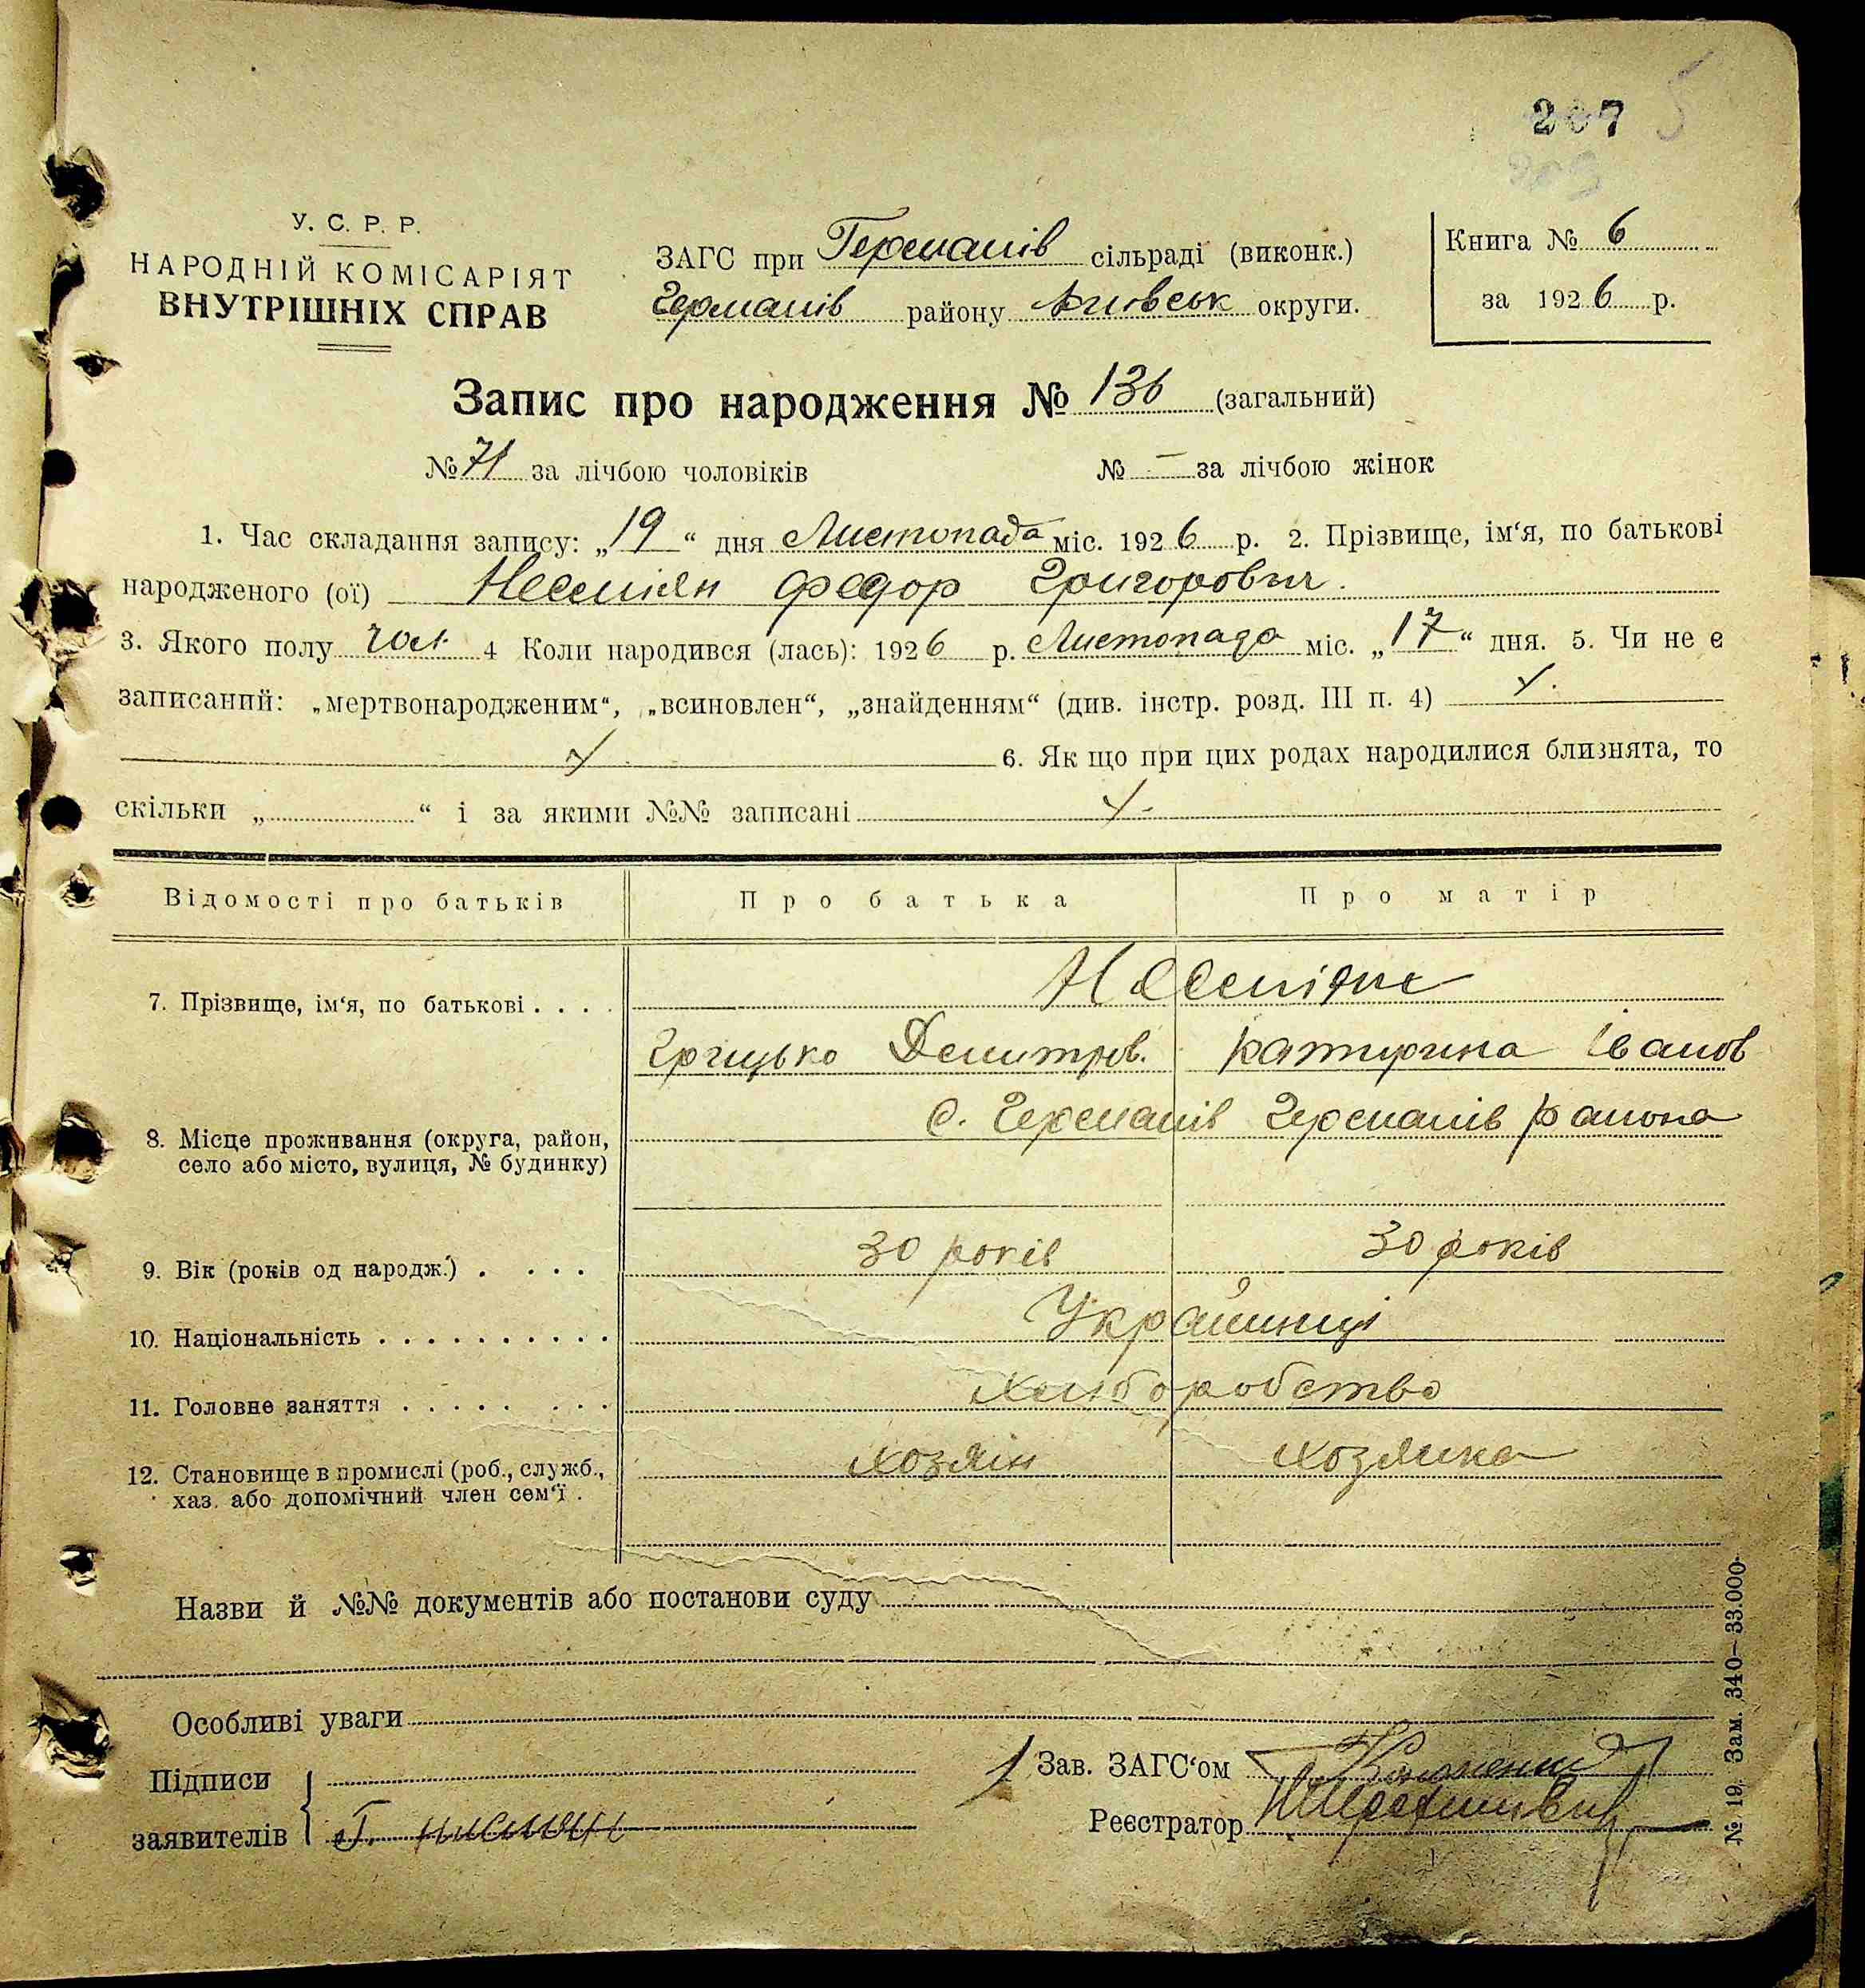 207 5
У. С. Р. Р.
НАРОДНІЙ КОМІСАРІЯТ
ВНУТРІШНІХ СПРАВ
ЗАГС при Германів сільраді (виконк.)
Германів району округи.
Книга № 6
за 1926 р.
Запис про народження № 136 (загальний)
№ 71 за лічбою чоловіків № — за лічбою жінок
1. Час складання запису: „19“ дня Листопада міс. 1926 р. 2. Прізвище, ім‘я, по батькові
народженого (ої) Несміян Федор Григорович.
3. Якого полу чол. 4 Коли народився (лась): 1926 р. Листопада міс. „17“ дня. 5. Чи не є
записаний: „мертвонародженим“, „всиновлен“, „знайденням“ (див. інстр. розд. III п. 4)
6. Як що при цих родах народилися близнята, то
скільки „ “ і за якими №№ записані
Відомості про батьків Про батька Про матір
7. Прізвище, ім‘я, по батькові . . . . Несміяне
Грицько Демитров. Катирина Іванов
8. Місце проживання (округа, район, с. Германів Германів района
село або місто, вулиця, № будинку)
9. Вік (років од народж.) . . . . 30 років 30 років
10. Національність . . . . . . . . . . Українці
11. Головне заняття . . . . . . . . Хліборобство
12. Становище в промислі (роб., служб., хозяін хозяика
хаз. або допомічний член сем‘ї .
Назви й №№ документів або постанови суду
Особливі уваги
Підписи
заявителів Г.
Зав. ЗАГС‘ом
Реєстратор
№ 19. Зам. 340—33.000.